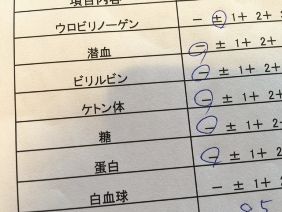 項目内容
ウロビリノーゲン － ± 1+ 2+
潜血 － ± 1+ 2+
ビリルビン － ± 1+ 2+
ケトン体 － ± 1+ 2+
糖 － ± 1+ 2
蛋白 － ± 1+ 2
白血球 － ± 1+ 2